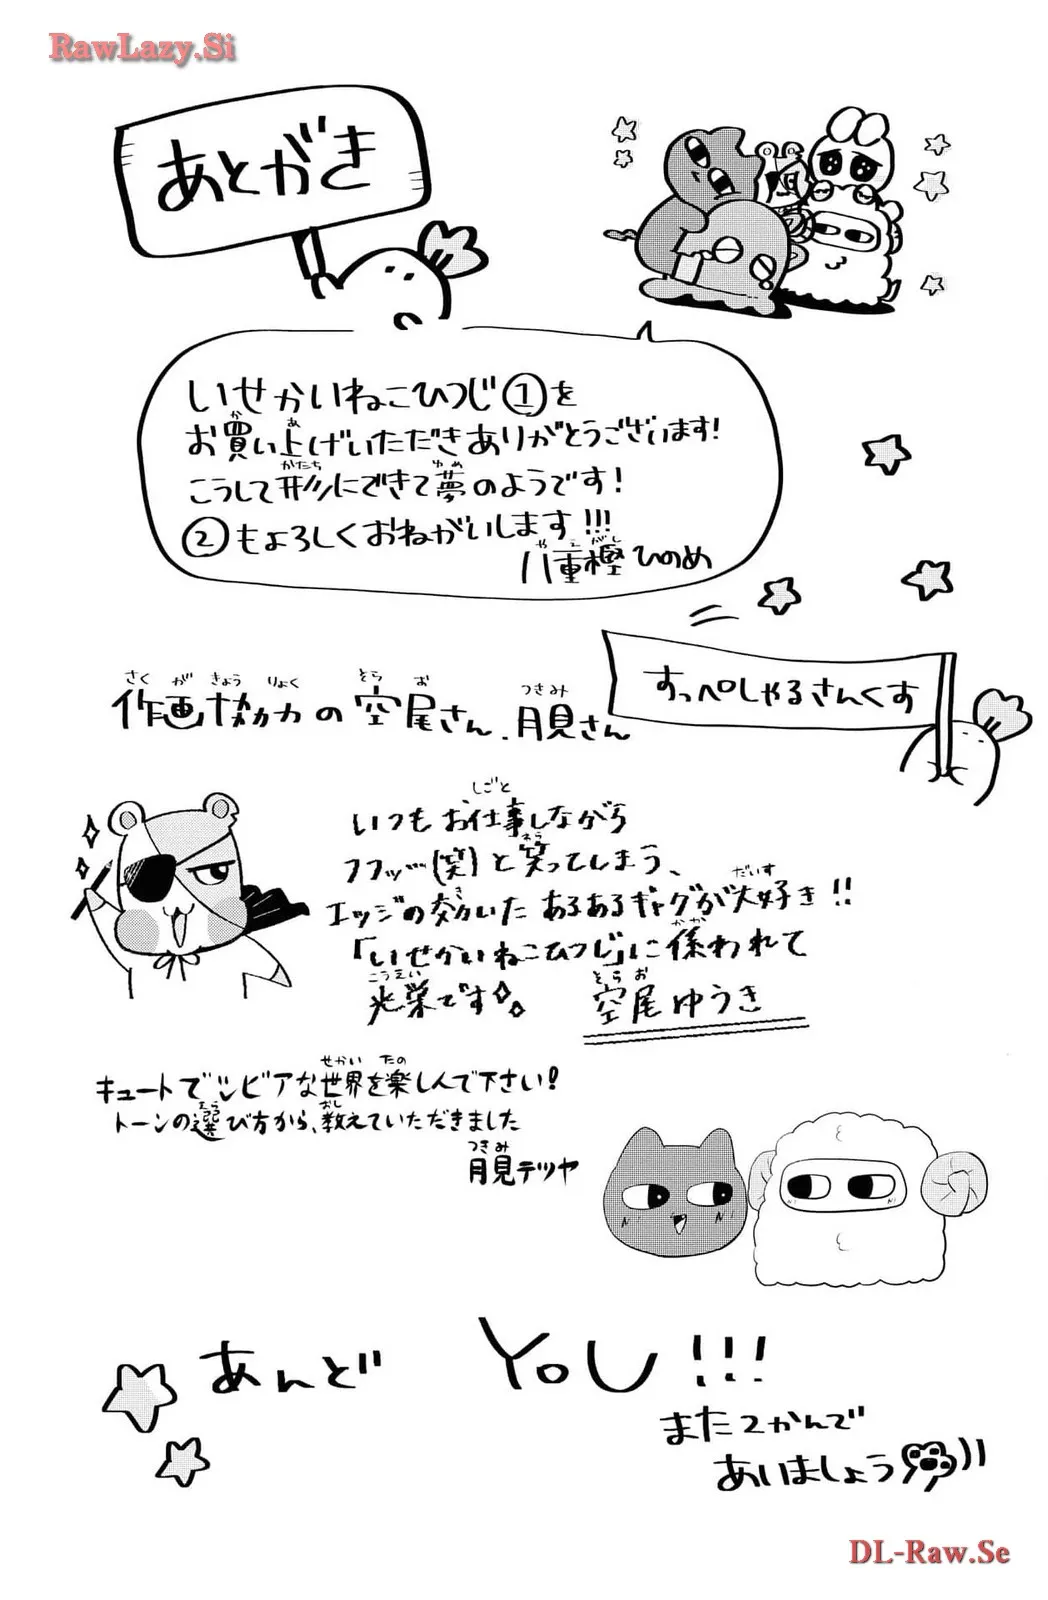 RawLazy.Si
あとがき
いせかいねこひつじ①を
お買い上げいただきありがとうございます!
こうして形にできて夢のようです!
②もよろしくおねがいします!!!
八重樫ひのめ
すっぺしゃるさんくす
作画協力の空尾さん、月見さん
いつもお仕事しながら
フフッ…(笑)と笑ってしまう、
エッジの効いたあるあるギャグが大好き!!
「いせかいねこひつじ」に係われて
光栄です。
空尾ゆうき
キュートでシビアな世界を楽しんで下さい!
トーンの選び方から、教えていただきました
月見テツヤ
あんど YOU!!!
また2かんで
あいましょう
DL-Raw.Se